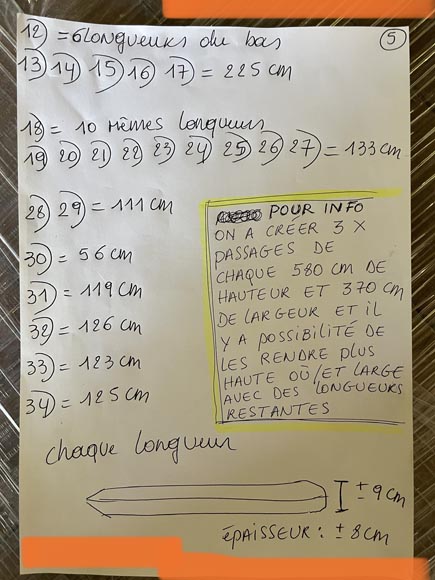 5
12) = 6 Longueurs du bas
13) 14) 15) 16) 17) = 225 cm
18) = 10 mêmes longueurs
19) 20) 21) 22) 23) 24) 25) 26) 27) = 133 cm
28) 29) = 111 cm
30) = 56 cm
31) = 119 cm
32) = 126 cm
33) = 123 cm
34) = 125 cm
POUR INFO
ON A CRÉER 3 X
PASSAGES DE
CHAQUE 580 CM DE
HAUTEUR ET 370 CM
DE LARGEUR ET IL
Y A POSSIBILITÉ DE
LES RENDRE PLUS
HAUTE OÙ/ET LARGE
AVEC DES LONGUEURS
RESTANTES
chaque longueur
± 9 cm
ÉPAISSEUR : ± 8 cm